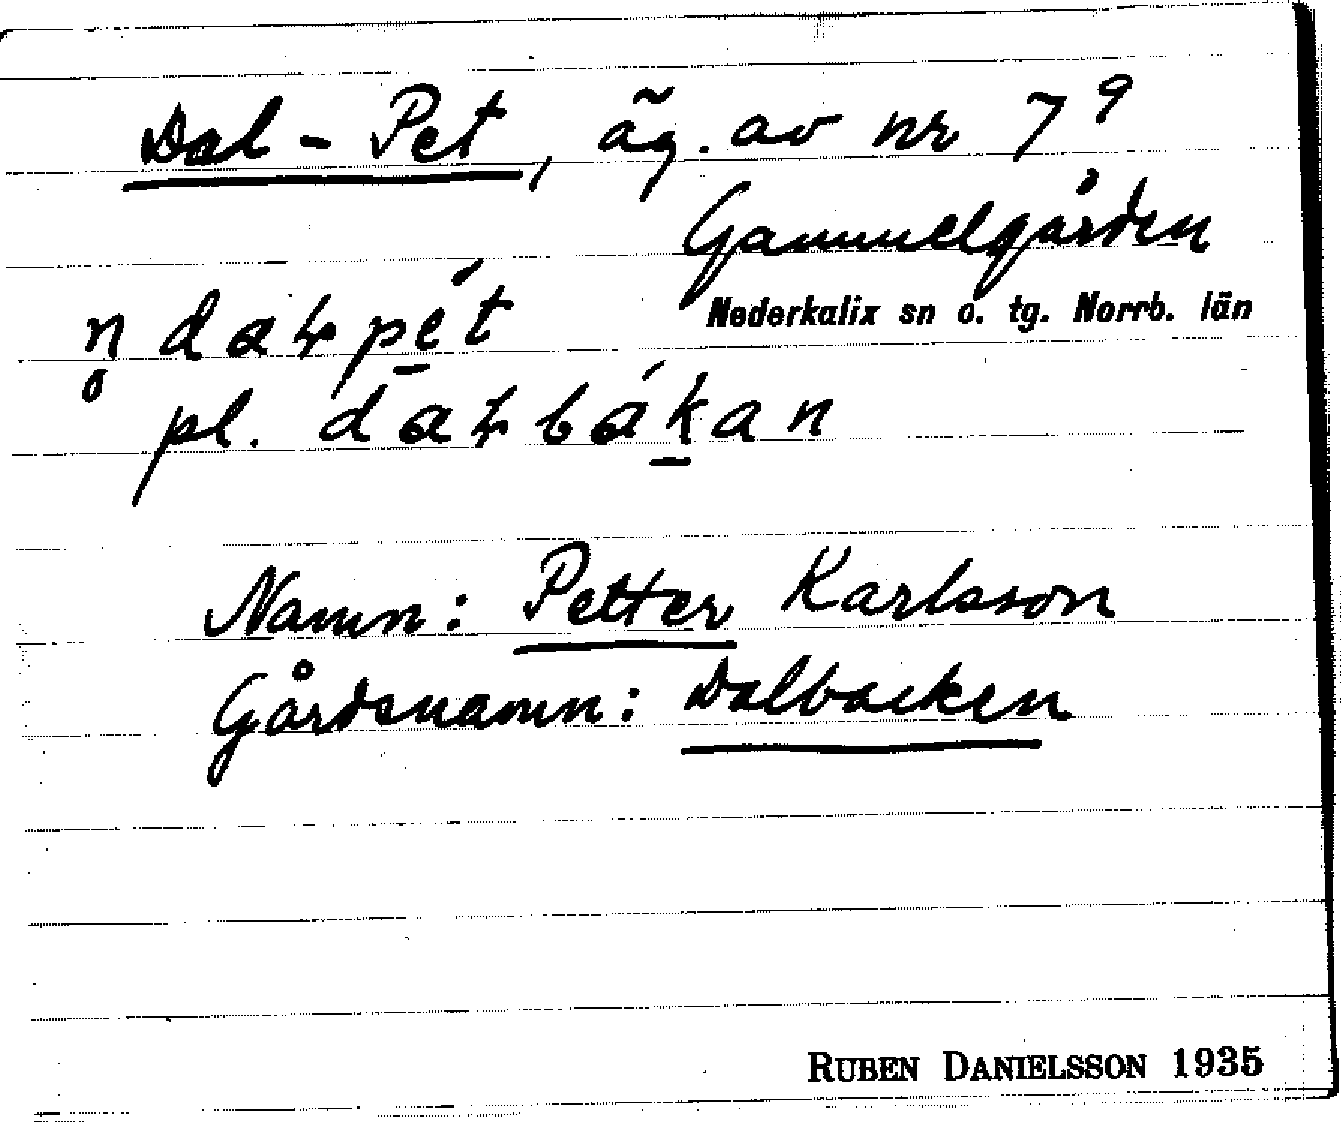 Dal-Pet, äg. av nr 7⁹
Gammelgården
Nederkalix sn o. tg. Norrb. län
n̥ daɽpé̠t
pl. daɽbák̠an
Namn: Petter Karlsson
Gårdsnamn: Dalbacken
RUBEN DANIELSSON 1935